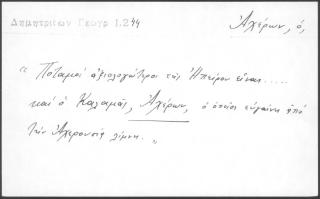 Δημητριέων Γεωγρ 1.244
Ἀχέρων, ὁ,
" Ποταμοὶ ἀξιολογώτεροι τῆς Ἠπείρου εἶναι.....
καὶ ὁ Καλαμᾶς, Ἀχέρων, ὁ ὁποῖος εὐγαίνει ἀπὸ
τὴν Ἀχερουσία λίμνη. "